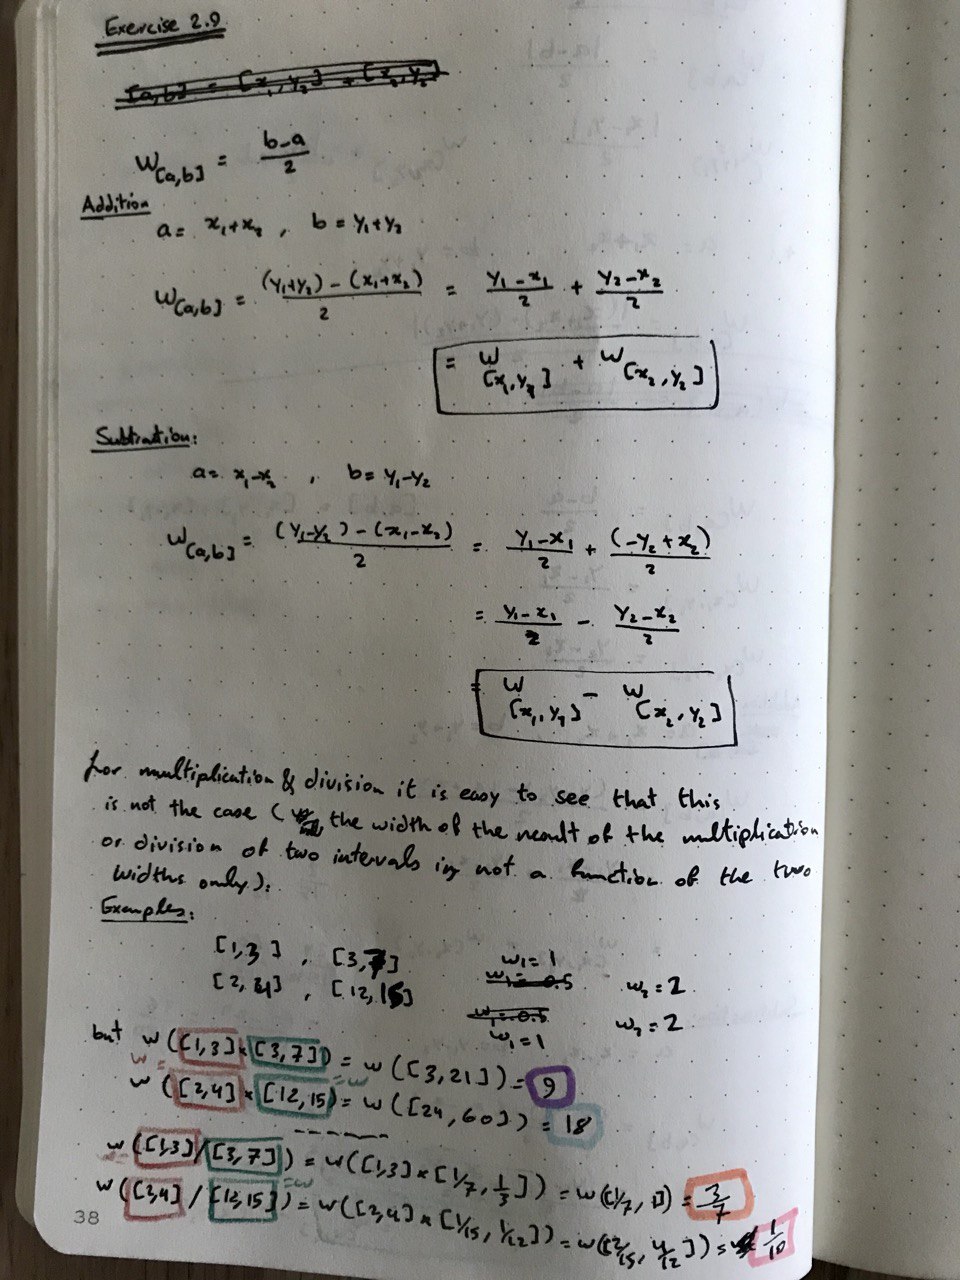 Exercise 2.9
[a,b] = [x₁,y₂] + [x₂,y₂]
W[a,b] = (b-a)/2
Addition
a = x₁+x₂ , b = y₁+y₂
W[a,b] = ((y₁+y₂) - (x₁+x₂))/2 = (y₁-x₁)/2 + (y₂-x₂)/2
= W[x₁,y₁] + W[x₂,y₂]
Subtraction:
a = x₁-x₂ , b = y₁-y₂
W[a,b] = ((y₁-y₂) - (x₁-x₂))/2 = (y₁-x₁)/2 + (-y₂+x₂)/2
= (y₁-x₁)/2 - (y₂-x₂)/2
= W[x₁,y₁] - W[x₂,y₂]
for multiplication & division it is easy to see that this
is not the case ( the width of the result of the multiplication
or division of two intervals is not a function of the two
widths only).
Examples:
[1,3] , [3,7] w₁=1 w₂=2
w₁=0.5
[2,4] , [12,15] w₁=0.5 w₂=2
w₁=1
but w([1,3]×[3,7]) = w([3,21]) = 9
w= =w
w([2,4]×[12,15]) = w([24,60]) = 18
w([1,3]/[3,7]) = w([1,3]×[1/7,1/3]) = w([1/7,1]) = 3/7
=w
w([2,4]/[12,15]) = w([2,4]×[1/15,1/12]) = w([2/15,4/12]) = 1/10
38